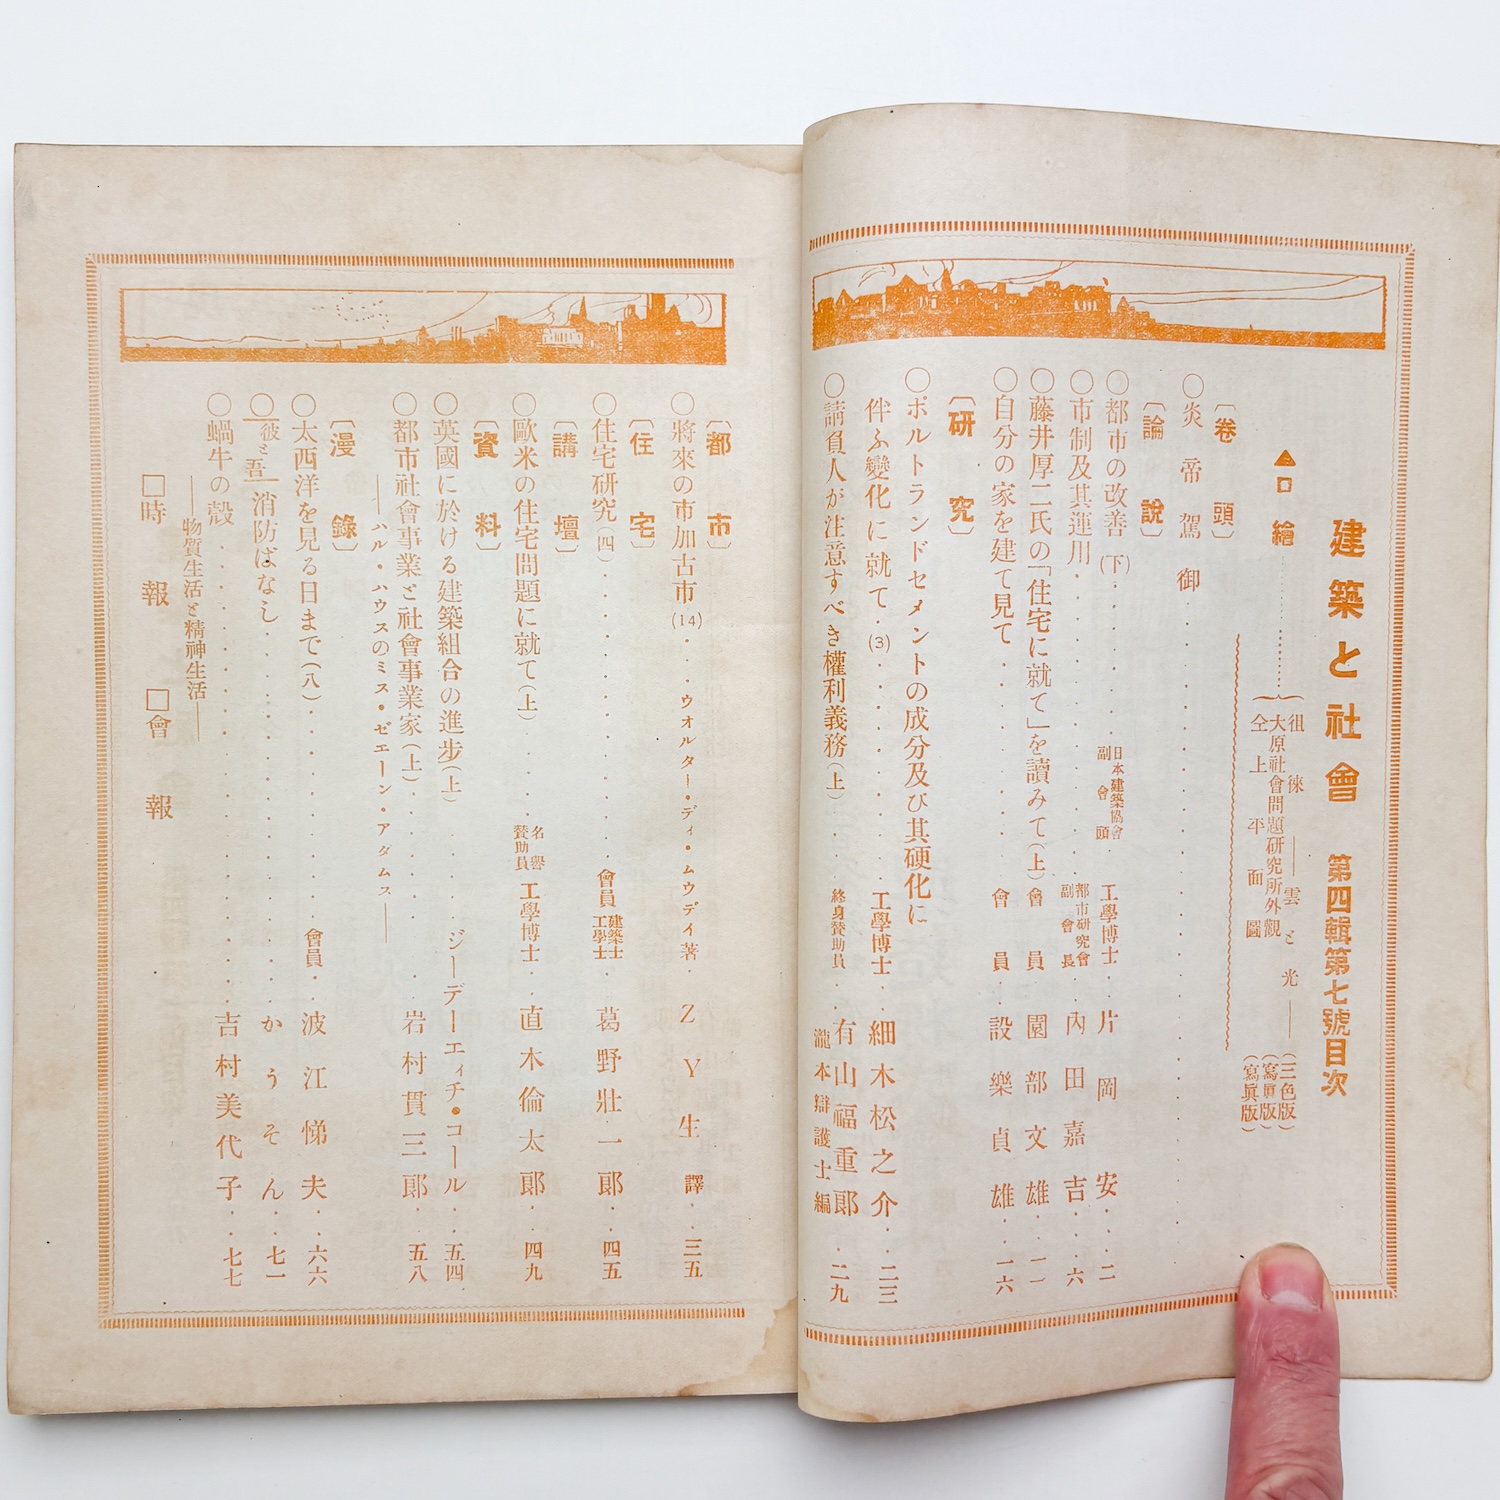 建築と社會 第四輯第七號目次
▲口繪
徂徠——雲と光——(三色版)
大原社會問題研究所外觀(寫眞版)
仝上平面圖(寫眞版)
〔卷頭〕
○炎帝駕御
〔論說〕
○都市の改善(下) 日本建築協會副會頭 工學博士 片岡安 二
○市制及其運用 都市研究會副會長 內田嘉吉 六
○藤井厚二氏の「住宅に就て」を讀みて(上) 會員 園部文雄 一一
○自分の家を建て見て 會員 設樂貞雄 一六
〔研究〕
○ポルトランドセメントの成分及び其硬化に
伴ふ變化に就て(3) 工學博士 細木松之介 二三
○請負人が注意すべき權利義務(上) 終身贊助員 有山福重郞 瀧本辯護士編 二九
〔都市〕
○將來の市加古市(14) ウオルター・ディ・ムウディ著 ZY生譯 三五
〔住宅〕
○住宅研究(四) 會員 建築士 工學士 葛野壯一郞 四五
〔講壇〕
○歐米の住宅問題に就て(上) 名譽贊助員 工學博士 直木倫太郞 四九
〔資料〕
○英國に於ける建築組合の進步(上) ジーデーエィチ・コール 五四
○都市社會事業と社會事業家(上) 岩村貫三郞 五八
——ハル・ハウスのミス・ゼエーン・アダムス——
〔漫錄〕
○太西洋を見る日まで(八) 會員 波江悌夫 六六
○彼と吾 消防ばなし かうそん 七一
○蝸牛の殼 吉村美代子 七七
——物質生活と精神生活——
□時報 □會報